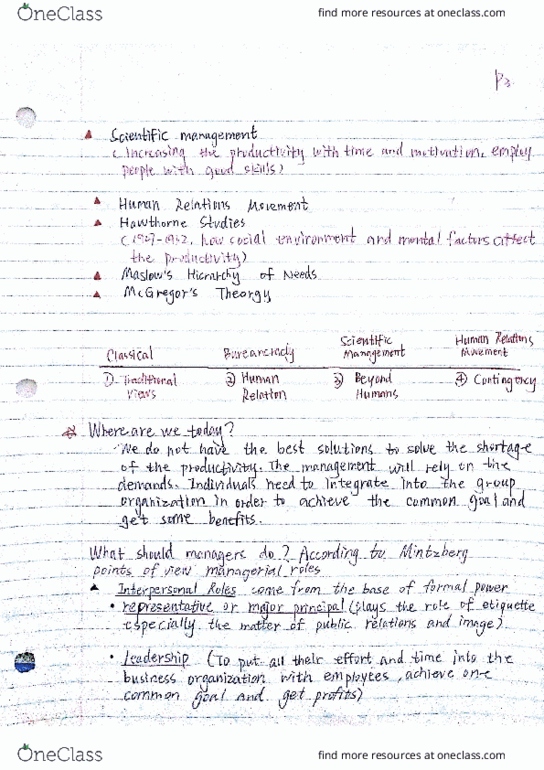 OneClass
find more resources at oneclass.com
P3.
Scientific management
(Increasing the productivity with time and motivation, employ
people with good skills)
Human Relations Movement
Hawthorne Studies
how social environment and mental factors affect
the productivity)
Maslow's Hierarchy of Needs
McGregor's Theorgy
Classical Bureaucracy Scientific Management Human Relations Movement
① Traditional Views ② Human Relation ③ Beyond Humans ④ Contingency
Where are we today?
We do not have the best solutions to solve the shortage
of the productivity. The management will rely on the
demands. Individuals need to integrate into the group
organization in order to achieve the common goal and
get some benefits.
What should managers do? According to Mintzberg
points of view managerial roles
Interpersonal Roles come from the base of formal power
• representative or major principal (plays the role of etiquette
especially the matter of public relations and image).
• Leadership (To put all their effort and time into the
business organization with employees, achieve one
common goal and get profits)
OneClass
find more resources at oneclass.com